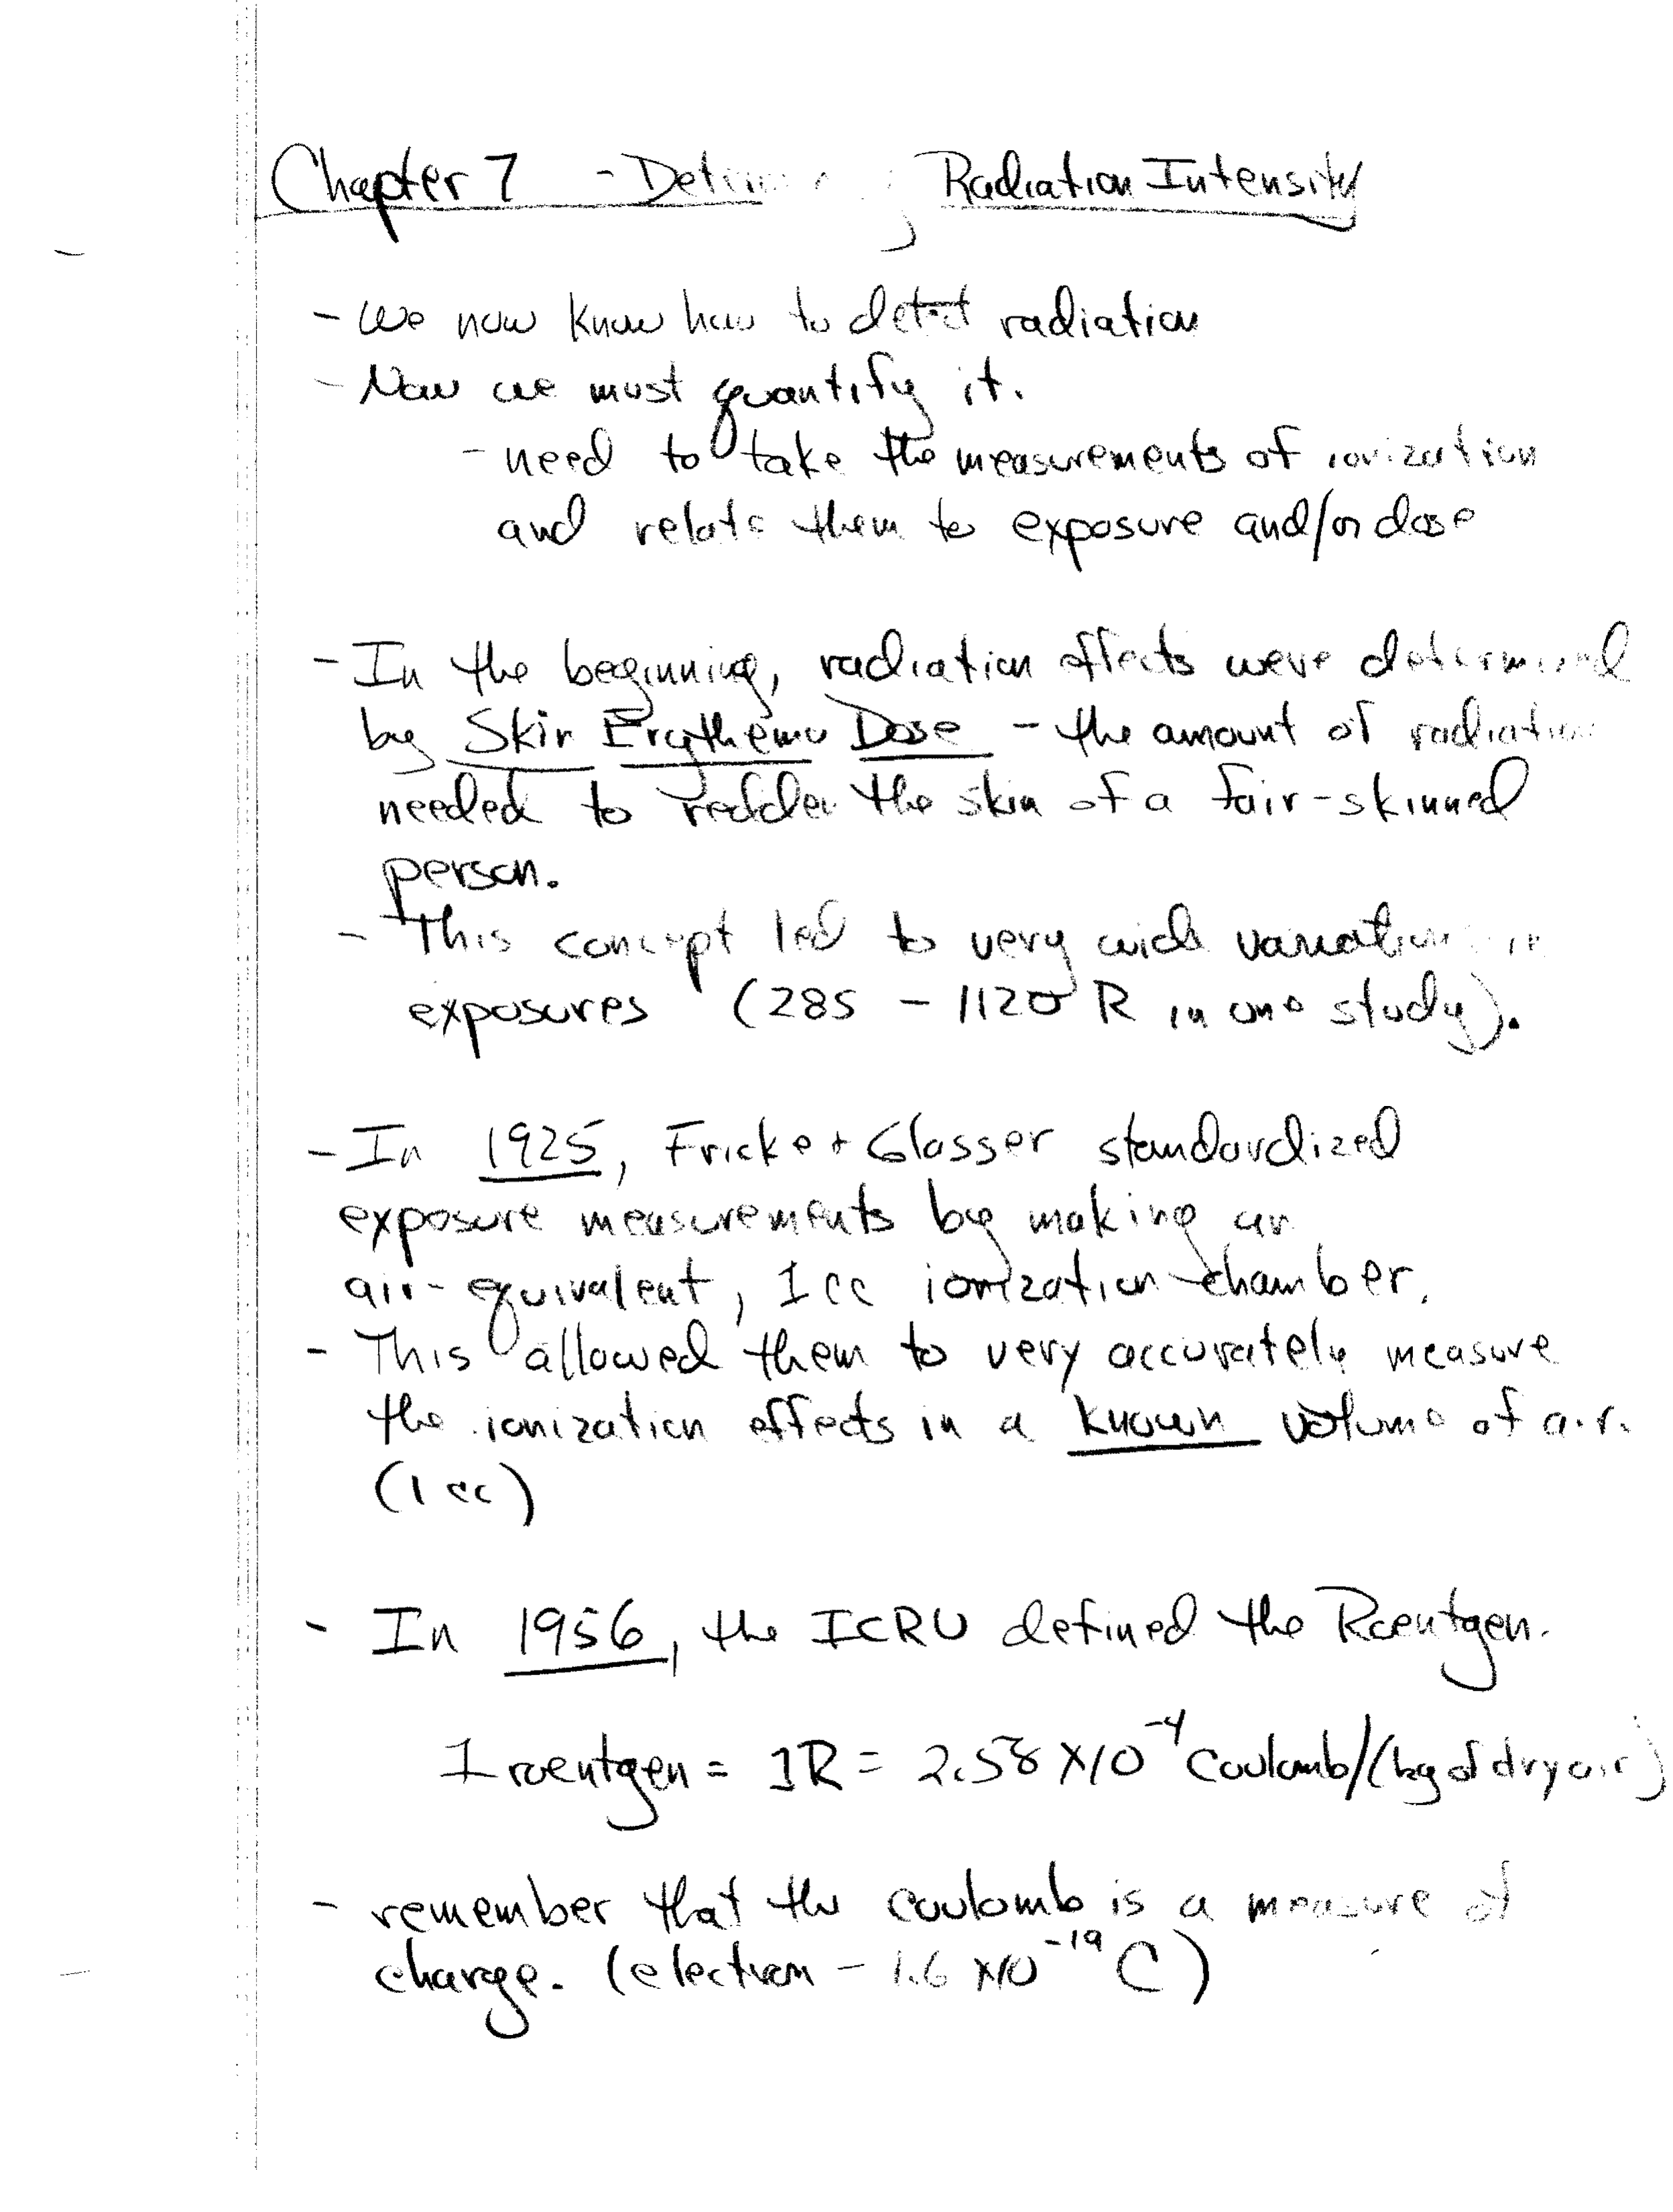 Chapter 7 - Determining Radiation Intensity
- We now know how to detect radiation
- Now we must quantify it.
- need to take the measurements of ionization
and relate them to exposure and/or dose
- In the beginning, radiation effects were determined
by Skin Erythema Dose - the amount of radiation
needed to redden the skin of a fair-skinned
person.
- This concept led to very wide variations in
exposures (285 - 1120 R in one study).
- In 1925, Fricke + Glasser standardized
exposure measurements by making an
air-equivalent, 1 cc ionization chamber.
- This allowed them to very accurately measure
the ionization effects in a known volume of air.
(1 cc)
- In 1956, the ICRU defined the Roentgen.
1 roentgen = 1R = 2.58 X10⁻⁴ Coulomb/(kg of dry air)
- remember that the coulomb is a measure of
charge. (electron - 1.6 X10⁻¹⁹ C)